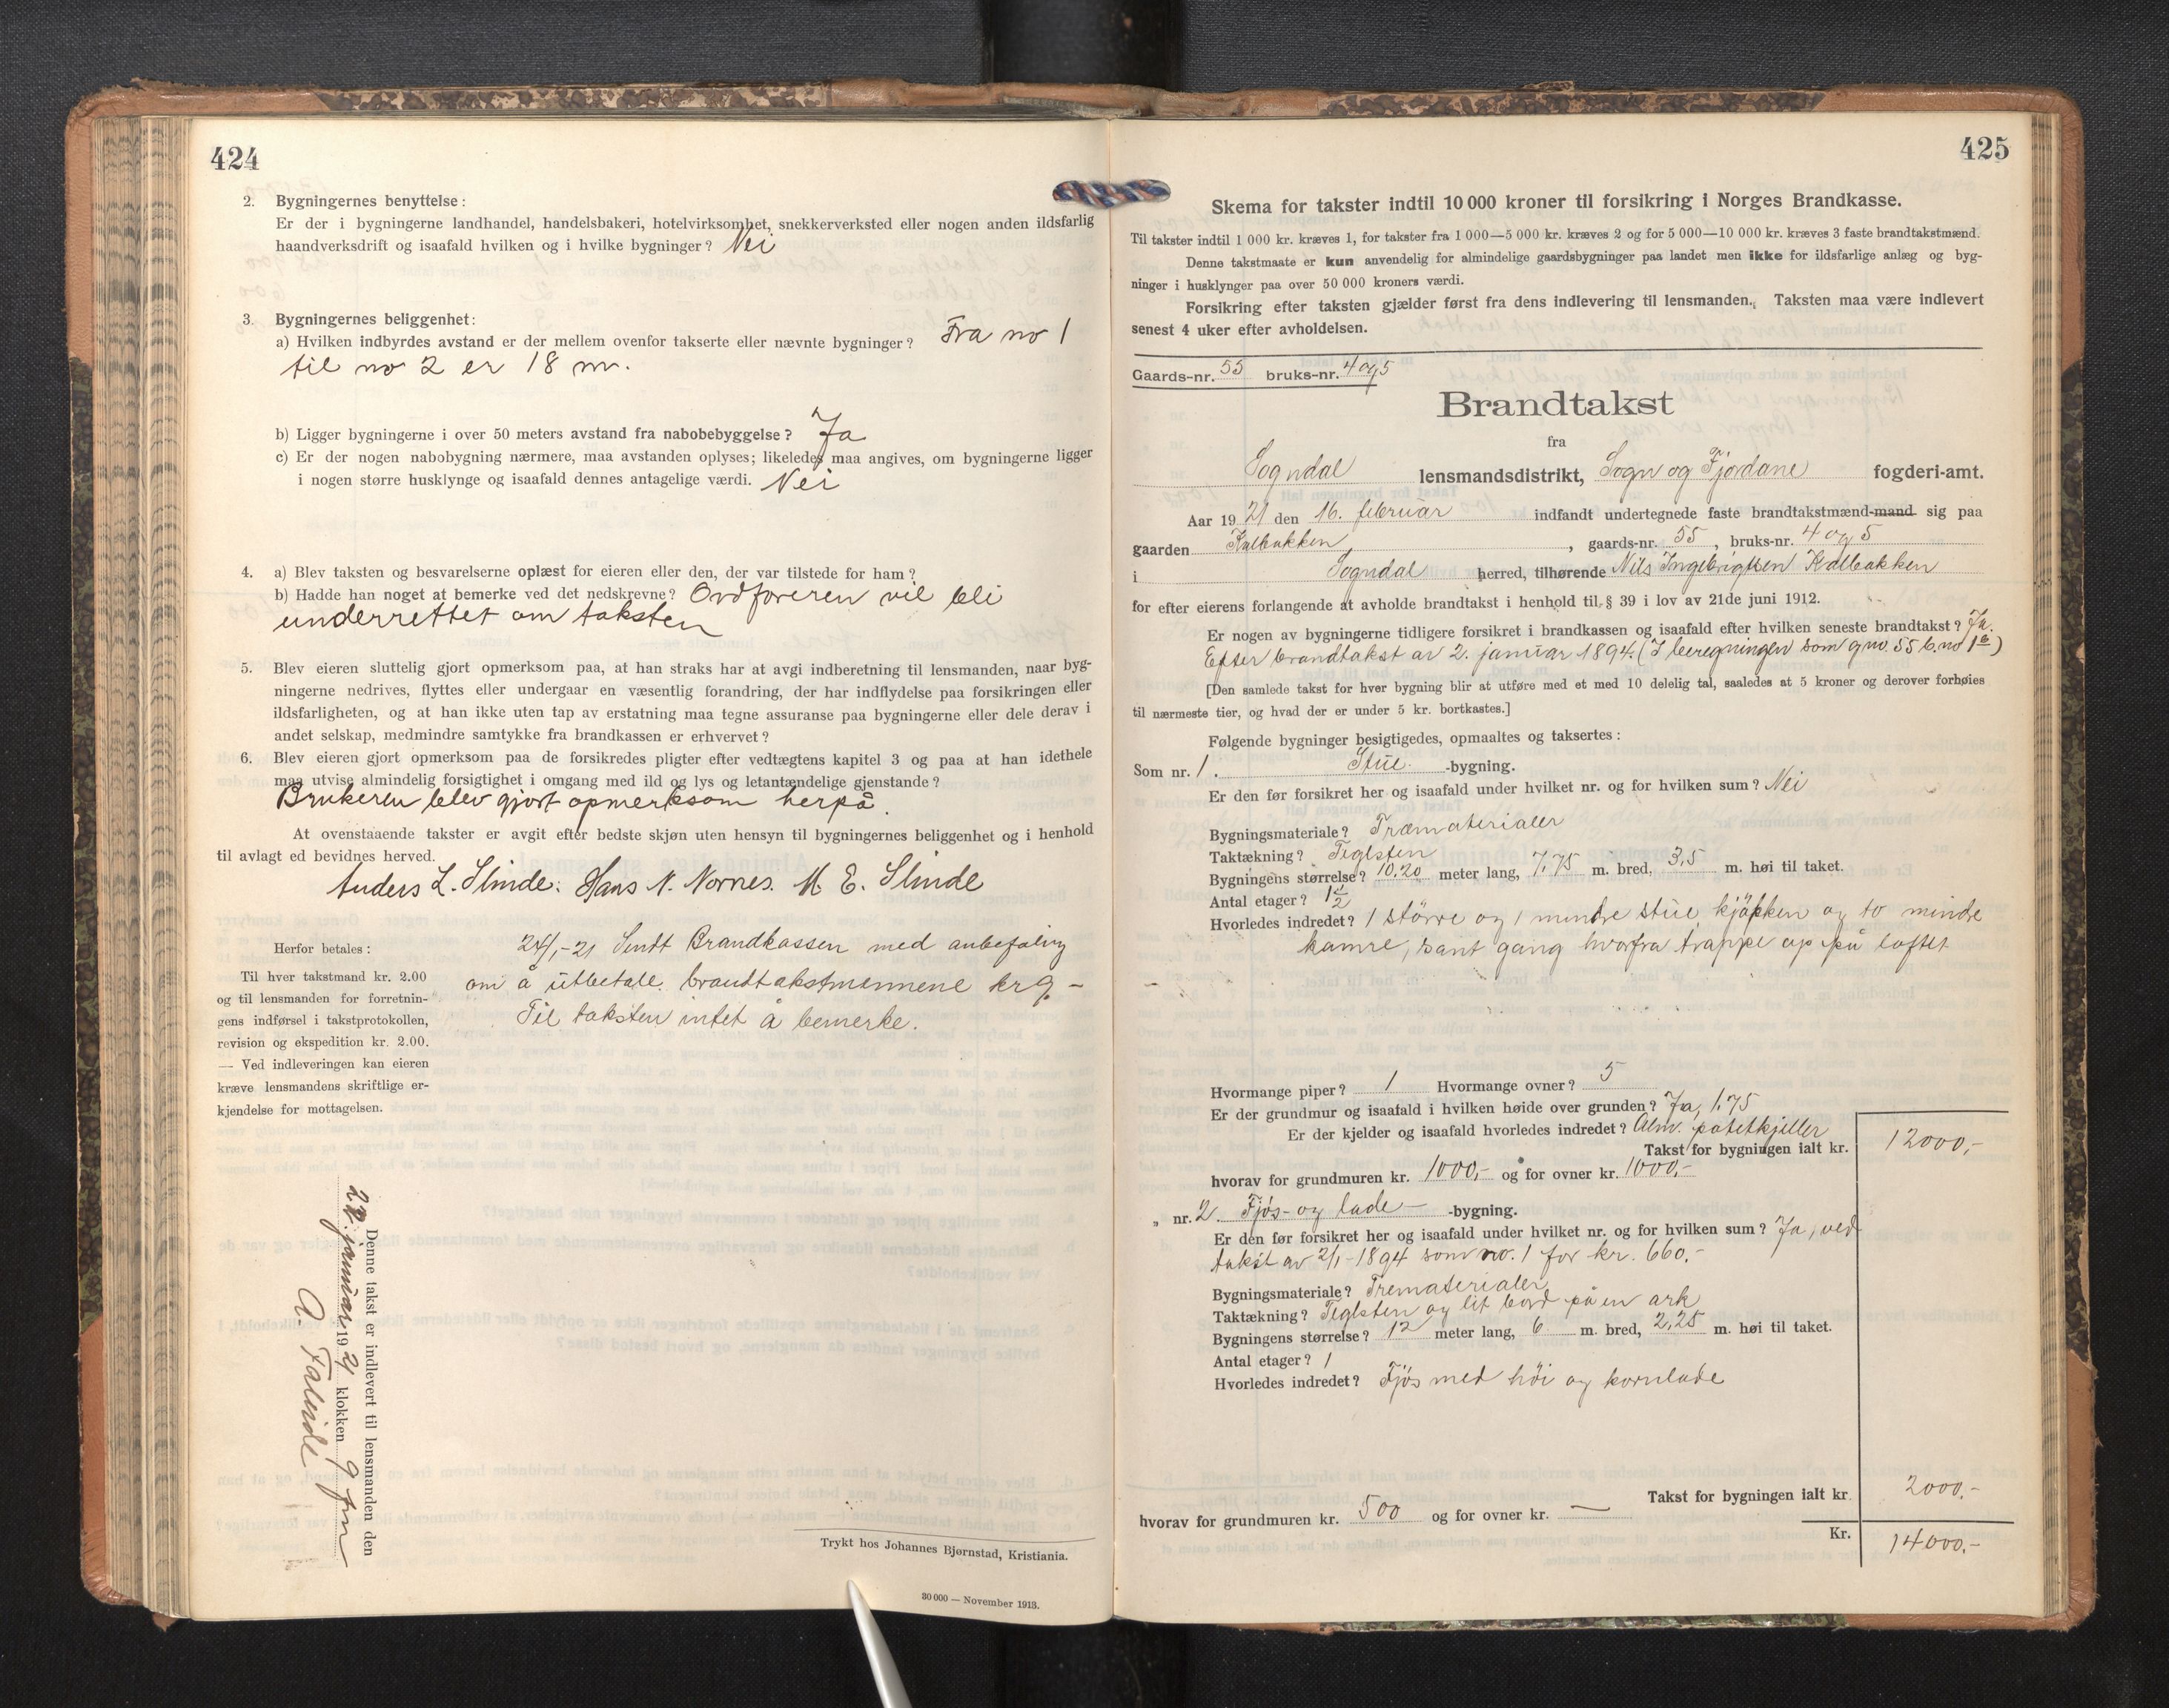 424
2. Bygningernes benyttelse:
Er der i bygningerne landhandel, handelsbakeri, hotelvirksomhet, snekkerverksted eller nogen anden ildsfarlig
haandverksdrift og isaafald hvilken og i hvilke bygninger? Nei
3. Bygningernes beliggenhet:
a) Hvilken indbyrdes avstand er der mellem ovenfor takserte eller nævnte bygninger? Fra no 1
til no 2 er 18 m.
b) Ligger bygningerne i over 50 meters avstand fra nabobebyggelse? Ja
c) Er der nogen nabobygning nærmere, maa avstanden oplyses; likeledes maa angives, om bygningerne ligger
i nogen større husklynge og isaafald dennes antagelige værdi. Nei
4. a) Blev taksten og besvarelserne oplæst for eieren eller den, der var tilstede for ham?
b) Hadde han noget at bemerke ved det nedskrevne? Ordføreren vil bli
underrettet om taksten
5. Blev eieren sluttelig gjort opmerksom paa, at han straks har at avgi indberetning til lensmanden, naar byg-
ningerne nedrives, flyttes eller undergaar en væsentlig forandring, der har indflydelse paa forsikringen eller
ildsfarligheten, og at han ikke uten tap av erstatning maa tegne assuranse paa bygningerne eller dele derav i
andet selskap, medmindre samtykke fra brandkassen er erhvervet?
6. Blev eieren gjort opmerksom paa de forsikredes pligter efter vedtægtens kapitel 3 og paa at han idethele
maa utvise almindelig forsigtighet i omgang med ild og lys og letantændelige gjenstande?
Brukeren blev gjort opmerksom herpå.
At ovenstaaende takster er avgit efter bedste skjøn uten hensyn til bygningernes beliggenhet og i henhold
til avlagt ed bevidnes herved.
Anders L. Slinde. Hans N. Nornes. M. E. Slinde
Herfor betales:
Til hver takstmand kr. 2.00
og til lensmanden for forretnin-
gens indførsel i takstprotokollen,
revision og ekspedition kr. 2.00.
— Ved indleveringen kan eieren
kræve lensmandens skriftlige er-
kjendelse for mottagelsen.
24/1-21 Sendt Brandkassen med anbefaling
om å utbetale brandtakstmennene kr 9.-
Til taksten intet å bemerke.
Denne takst er indlevert til lensmanden den
22. januar 1921 klokken 9 fm
A. Faleide
Trykt hos Johannes Bjørnstad, Kristiania.
30 000 — November 1913.
425
Skema for takster indtil 10 000 kroner til forsikring i Norges Brandkasse.
Til takster indtil 1 000 kr. kræves 1, for takster fra 1 000—5 000 kr. kræves 2 og for 5 000—10 000 kr. kræves 3 faste brandtakstmænd.
Denne takstmaate er kun anvendelig for almindelige gaardsbygninger paa landet men ikke for ildsfarlige anlæg og byg-
ninger i husklynger paa over 50 000 kroners værdi.
Forsikring efter taksten gjælder først fra dens indlevering til lensmanden. Taksten maa være indlevert
senest 4 uker efter avholdelsen.
Gaards-nr. 55 bruks-nr. 4 og 5
Brandtakst
fra
Sogndal lensmandsdistrikt, Sogn og Fjordane fogderi-amt.
Aar 1921 den 16. februar indfandt undertegnede faste brandtakstmænd-mand sig paa
gaarden Kalbakken, gaards-nr. 55, bruks-nr. 4 og 5
i Sogndal herred, tilhørende Nils Ingebrigtsen Kalbakken
for efter eierens forlangende at avholde brandtakst i henhold til § 39 i lov av 21de juni 1912.
Er nogen av bygningerne tidligere forsikret i brandkassen og isaafald efter hvilken seneste brandtakst? Ja.
Efter brandtakst av 2. januar 1894. (I beregningen som gno. 55 b. no 1)
[Den samlede takst for hver bygning blir at utføre med et med 10 delelig tal, saaledes at 5 kroner og derover forhøies
til nærmeste tier, og hvad der er under 5 kr. bortkastes.]
Følgende bygninger besigtigedes, opmaaltes og taksertes:
Som nr. 1. Stue -bygning.
Er den før forsikret her og isaafald under hvilket nr. og for hvilken sum? Nei
Bygningsmateriale? Træmaterialer
Taktækning? Teglsten
Bygningens størrelse? 10.20 meter lang, 7,75 m. bred, 3,5 m. høi til taket.
Antal etager? 1 1/2
Hvorledes indredet? 1 større og 1 mindre stue kjøkken og to mindre
kamre, samt gang hvorfra trappe op på loftet
Hvormange piper? 1 Hvormange ovner? 5
Er der grundmur og isaafald i hvilken høide over grunden? Ja, 1.75
Er der kjelder og isaafald hvorledes indredet? Alm. potetkjeller
Takst for bygningen ialt kr. 12000,-
hvorav for grundmuren kr. 1000,- og for ovner kr. 1000,-
„ nr. 2. Fjøs- og lade- -bygning.
Er den før forsikret her og isaafald under hvilket nr. og for hvilken sum? Ja, ved
takst av 2/1-1894 som no. 1 for kr. 660.-
Bygningsmateriale? Trematerialer
Taktækning? Teglsten og lit bord på en ark
Bygningens størrelse? 12 meter lang, 6 m. bred, 2,25 m. høi til taket.
Antal etager? 1
Hvorledes indredet? Fjøs med høi og kornlade
Takst for bygningen ialt kr. 2000.-
hvorav for grundmuren kr. 500 og for ovner kr. —
Kr. 14000.-